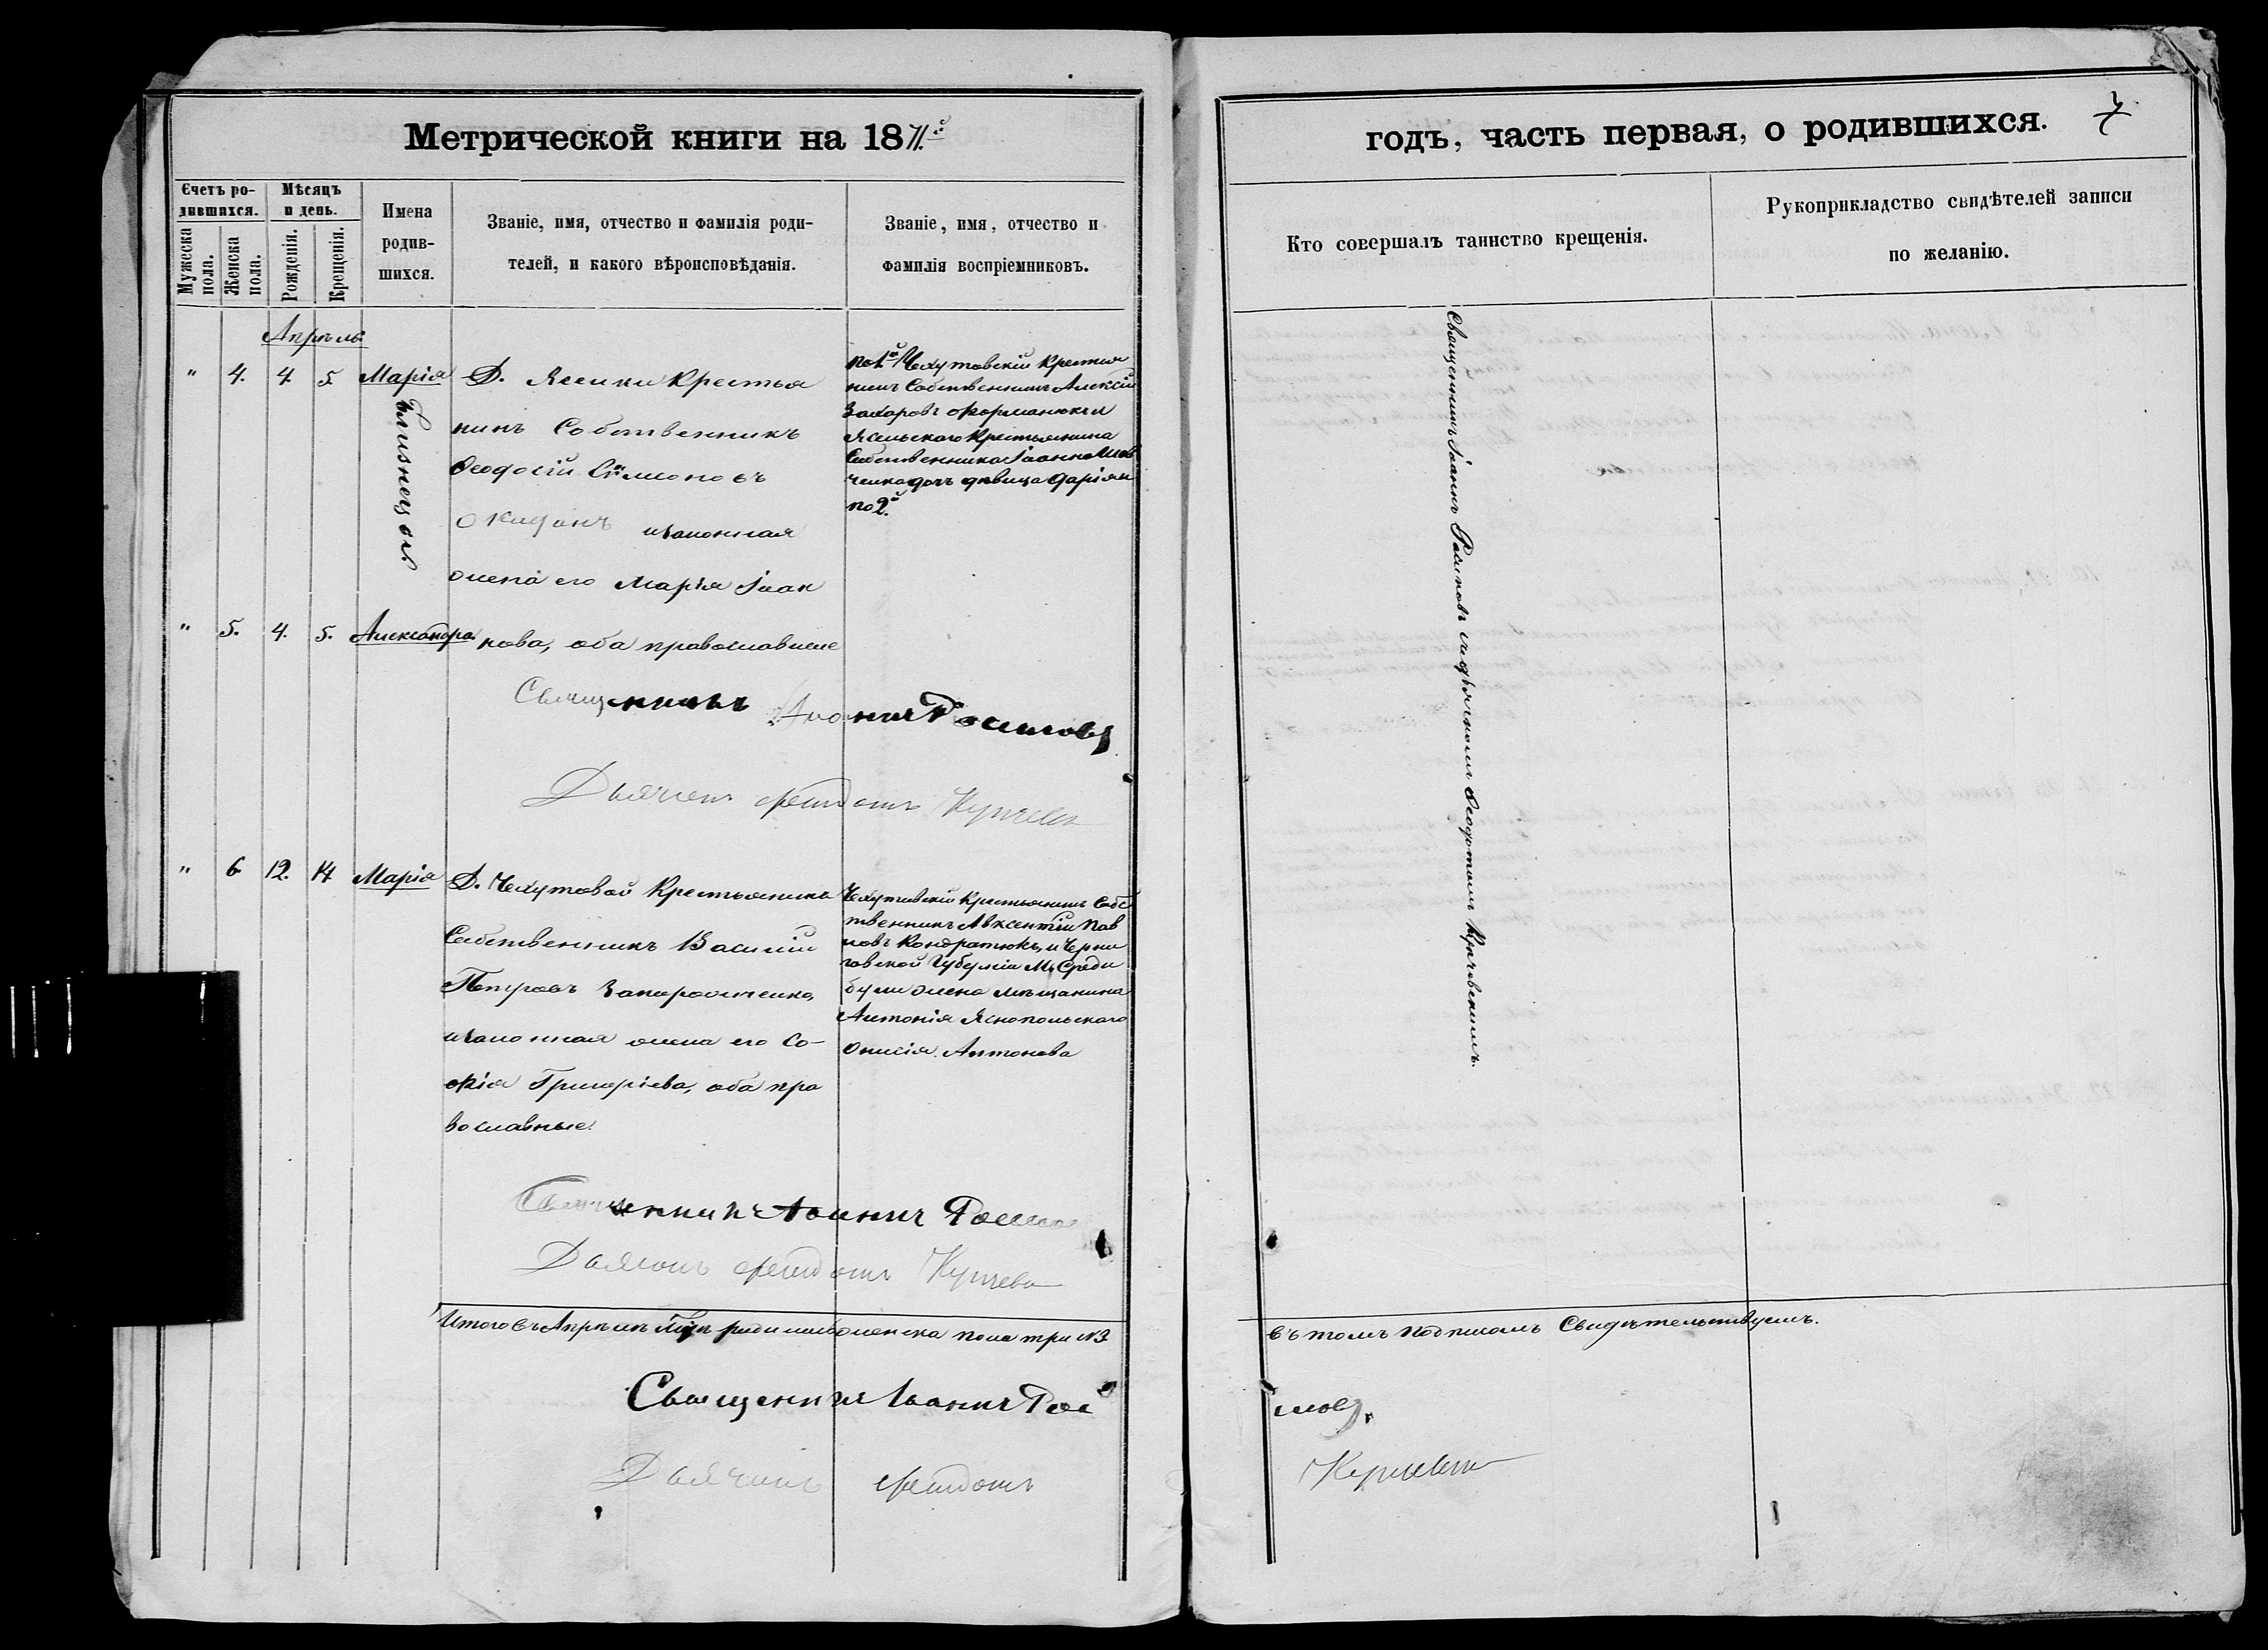 Метрической книги на 1871.й
годъ, часть первая, о родившихся.
7
Счетъ родившихся.
Мужеска пола.
Женска пола.
Мѣсяцъ и день.
Рожденія.
Крещенія.
Имена
родив-
шихся.
Званіе, имя, отчество и фамилія роди-
телей, и какого вѣроисповѣданія.
Званіе, имя, отчество и
фамилія воспріемниковъ.
Кто совершалъ таинство крещенія.
Рукоприкладство свидѣтелей записи
по желанію.
Апрѣль
" 4. 4. 5. Марія
близнецы
Д. Ясинки Крестья
нинъ Собственникъ
Ѳеодосій Симоновъ
изаконная
жена его Марія Іоан
нова, оба православные
по 1й Чехутовскій Крестья
нинъ Собственникъ Алексій
Захаровъ Форманюкъ и
Ясенскаго Крестьянина
Собственника Іоанна
дочь дѣвица Дарія и
по 2.й
" 5. 4. 5. Александра
Священникъ Іоаннъ
Дьячекъ Ѳеодотъ
" 6 12. 14 Марія
Д. Чехутовой Крестьянинъ
Собственникъ Василій
Петровъ Запорожченко,
изаконная жена его Со-
фія Григоріева, оба пра
вославные.
Чехутовскій Крестьянинъ Собс
твенникъ Авксентій Пав
ловъ Кондратюкъ, и Черни
говской Губерніи М. Среди
буды жена мѣщанина
Антонія Яснопольскаго
Онисія Антонова
Священникъ Іоаннъ
Дьячокъ Ѳеодотъ
Священникъ Іоаннъ съ дьячкомъ Ѳеодотомъ
Итого въ Апрѣлѣ М-цѣ родилось женска пола три №3
въ томъ подписомъ Свидѣтельствуемъ.
Священникъ Іоаннъ
Дьячокъ Ѳеодотъ